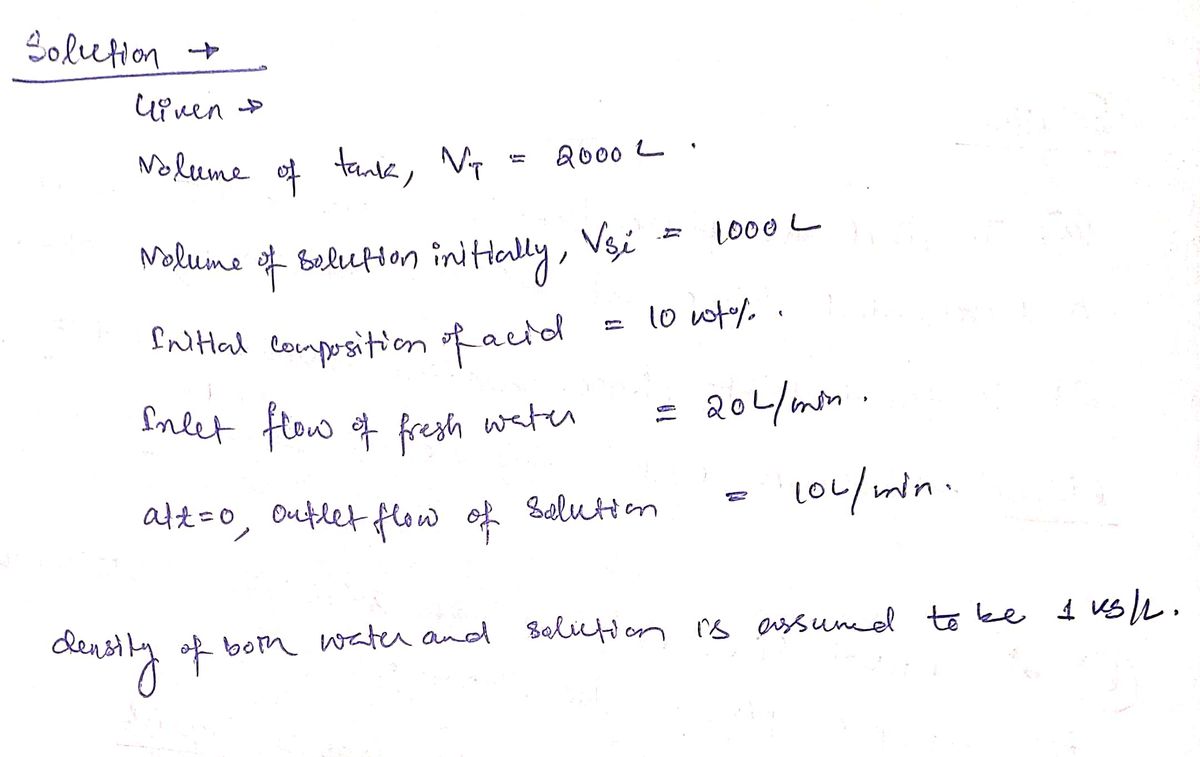 Solution →
Given →
Volume of tank, V_T = 2000 L.
Volume of solution initially, V_Si = 1000 L
Initial composition of acid = 10 wt%.
Inlet flow of fresh water = 20 L/min.
at t=0, outlet flow of solution = 10 L/min.
density of both water and solution is assumed to be 1 kg/L.